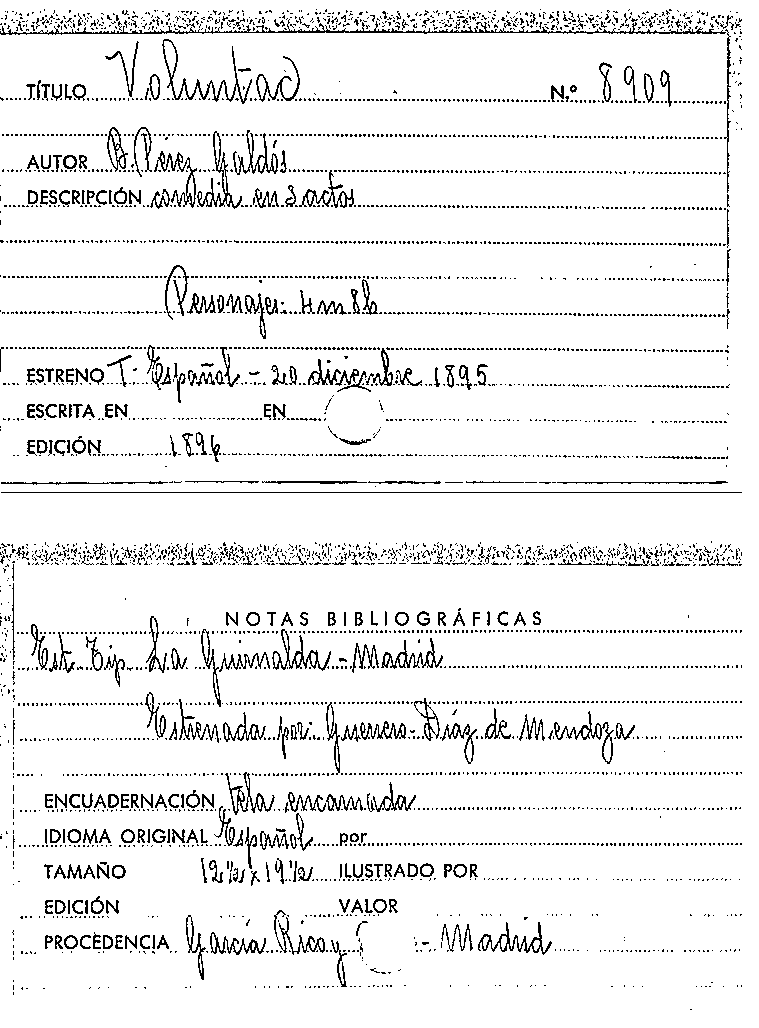 TÍTULO Voluntad N.º 8909
AUTOR B. Pérez Galdós
DESCRIPCIÓN comedia en 3 actos
Personajes: 4 m 8 h
ESTRENO T. Español - 20 diciembre 1895
ESCRITA EN EN
EDICIÓN 1896
NOTAS BIBLIOGRÁFICAS
Est. Tip. La Guirnalda - Madrid
Estrenada por: Guerrero - Díaz de Mendoza
ENCUADERNACIÓN tela encarnada
IDIOMA ORIGINAL Español por
TAMAÑO 12 ½ x 19 ½ ILUSTRADO POR
EDICIÓN VALOR
PROCEDENCIA García Rico y - Madrid